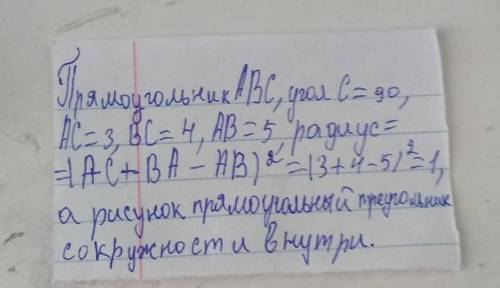 Прямоугольник ABC, угол C=90,
AC=3, BC=4, AB=5 радиус=
=(AC+BA-AB)2=(3+4-5)2=1,
а рисунок прямоугольный треугольник
с окружности внутри.